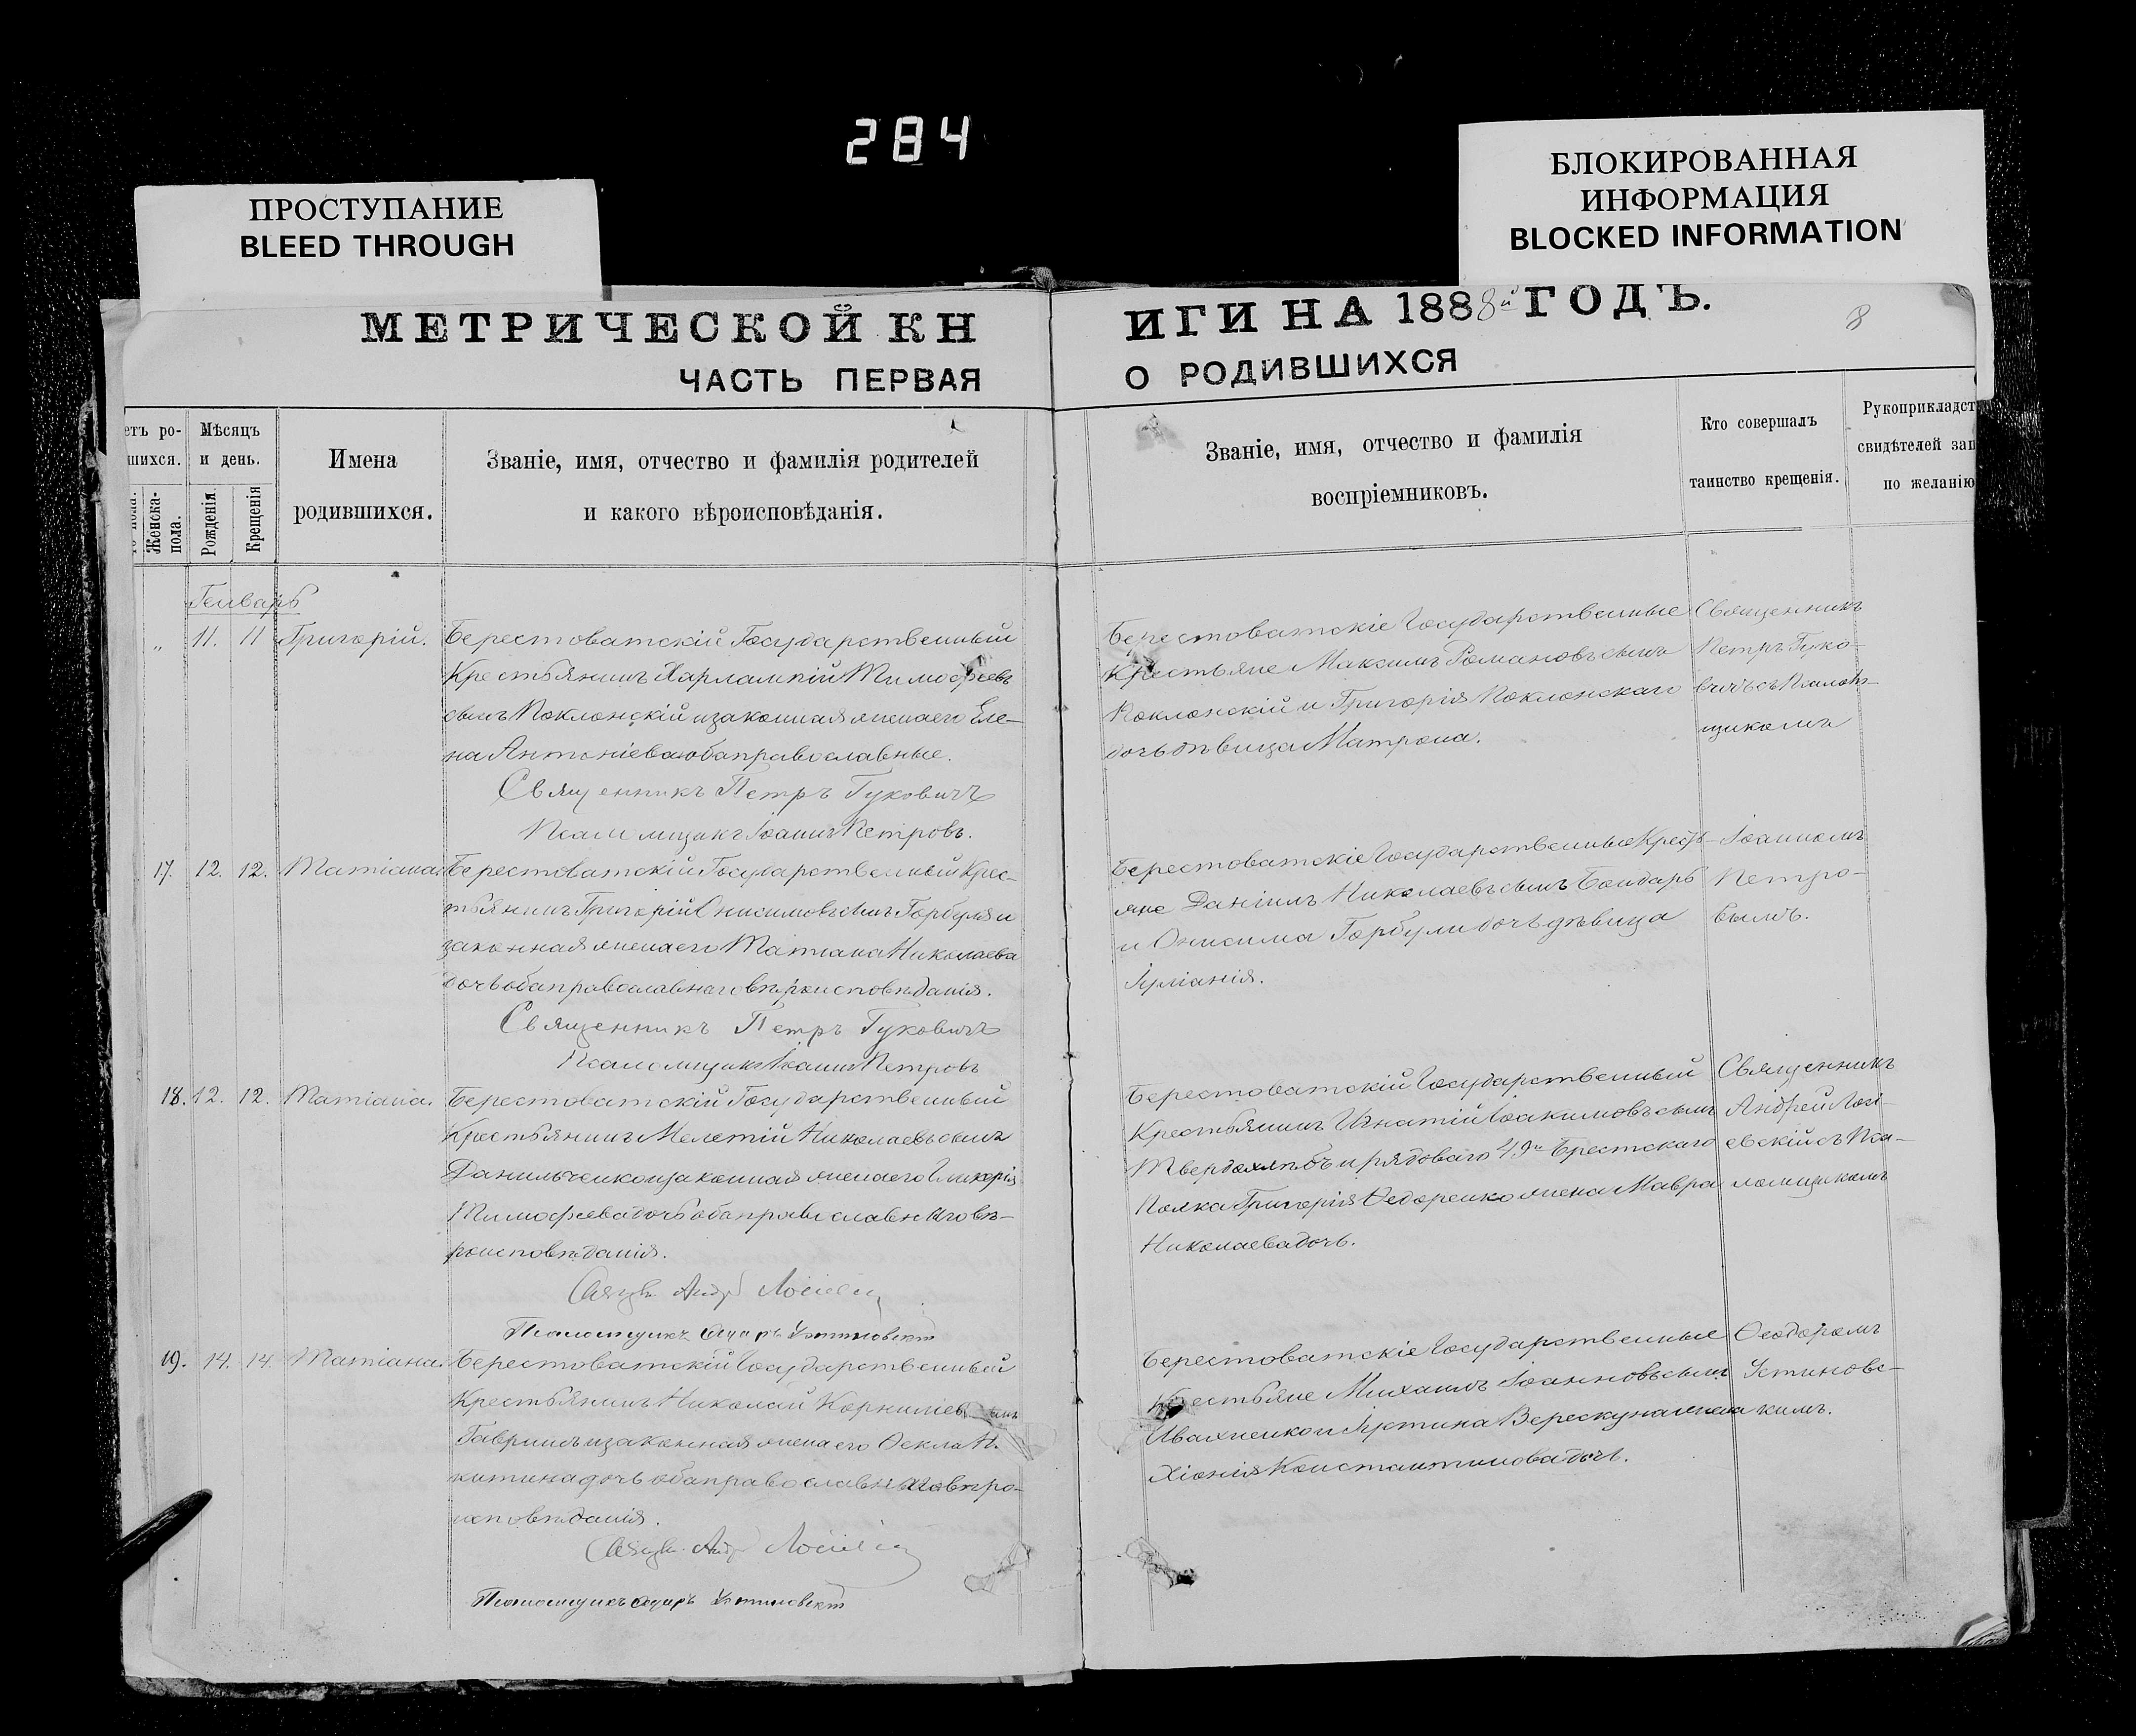 284
ПРОСТУПАНИЕ
BLEED THROUGH
БЛОКИРОВАННАЯ
ИНФОРМАЦИЯ
BLOCKED INFORMATION
МЕТРИЧЕСКОЙ КН
ИГИ НА 1888й ГОДЪ.
8
ЧАСТЬ ПЕРВАЯ
О РОДИВШИХСЯ
етъ ро-
шихся.
Женска-
пола.
Мѣсяцъ
и день.
Рожденія.
Крещенія
Имена
родившихся.
Званіе, имя, отчество и фамилія родителей
и какого вѣроисповѣданія.
Званіе, имя, отчество и фамилія
воспріемниковъ.
Кто совершалъ
таинство крещенія.
Рукоприкладст
свидѣтелей зап
по желанію
Генварь
„ 11. 11 Григорій.
Берестоватскій Государственный
Крестьянинъ Харлампій Тимофеевъ
сынъ Поклонскій и законная жена его Еле-
на Антоніева оба православные.
Священникъ Петръ Гуковичъ
Псаломщикъ Іоаннъ Петровъ.
Берестоватскіе Государственные
Крестьяне Максимъ Романовъ сынъ
Поклонскій и Григорія Поклонскаго
дочь дѣвица Матрона.
Священникъ
Петръ Гуко-
вичъ съ Псалом-
щикомъ
17. 12. 12. Татіана.
Берестоватскій Государственный Крес-
тьянинъ Григорій Онисимовъ сынъ Горбуля и
законная жена его Татіана Николаева
дочь оба православнаго вѣроисповѣданія.
Священникъ Петръ Гуковичъ
Псаломщикъ Іоаннъ Петровъ
Берестоватскіе Государственные Кресть-
яне Даніилъ Николаевъ сынъ Бондарь
и Онисима Горбули дочь дѣвица
Іуліанія.
Іоанномъ
Петро-
вымъ.
18. 12. 12. Татіана.
Берестоватскій Государственный
Крестьянинъ Мелетій Николаевъ сынъ
Данильченко и законная жена его Гликерія
Тимофеева дочь оба православнаго вѣ-
роисповѣданія.
Псаломщикъ Ѳеодоръ Устиновскій
Берестоватскій Государственный
Крестьянинъ Игнатій Іоакимовъ сынъ
Твердохлѣбъ и рядоваго 49го Брестскаго
Полка Григорія Федоренко жена Мавра
Николаева дочь.
Священникъ
Андрей Лосі-
евскій съ Пса-
ломщикомъ
19. 14. 14. Татіана.
Берестоватскій Государственный
Крестьянинъ Николай Корнилиев сынъ
Гавришъ и законная жена его Ѳекла Ни-
китина дочь оба православнаго вѣро-
исповѣданія.
Псаломщикъ Ѳеодоръ Устиновскій
Берестоватскіе Государственные
Крестьяне Михаилъ Іоанновъ сынъ
Ивахненко и Іустина Верескуна жена
Хіонія Константинова дочь.
Ѳеодоромъ
Устиновс-
кимъ.